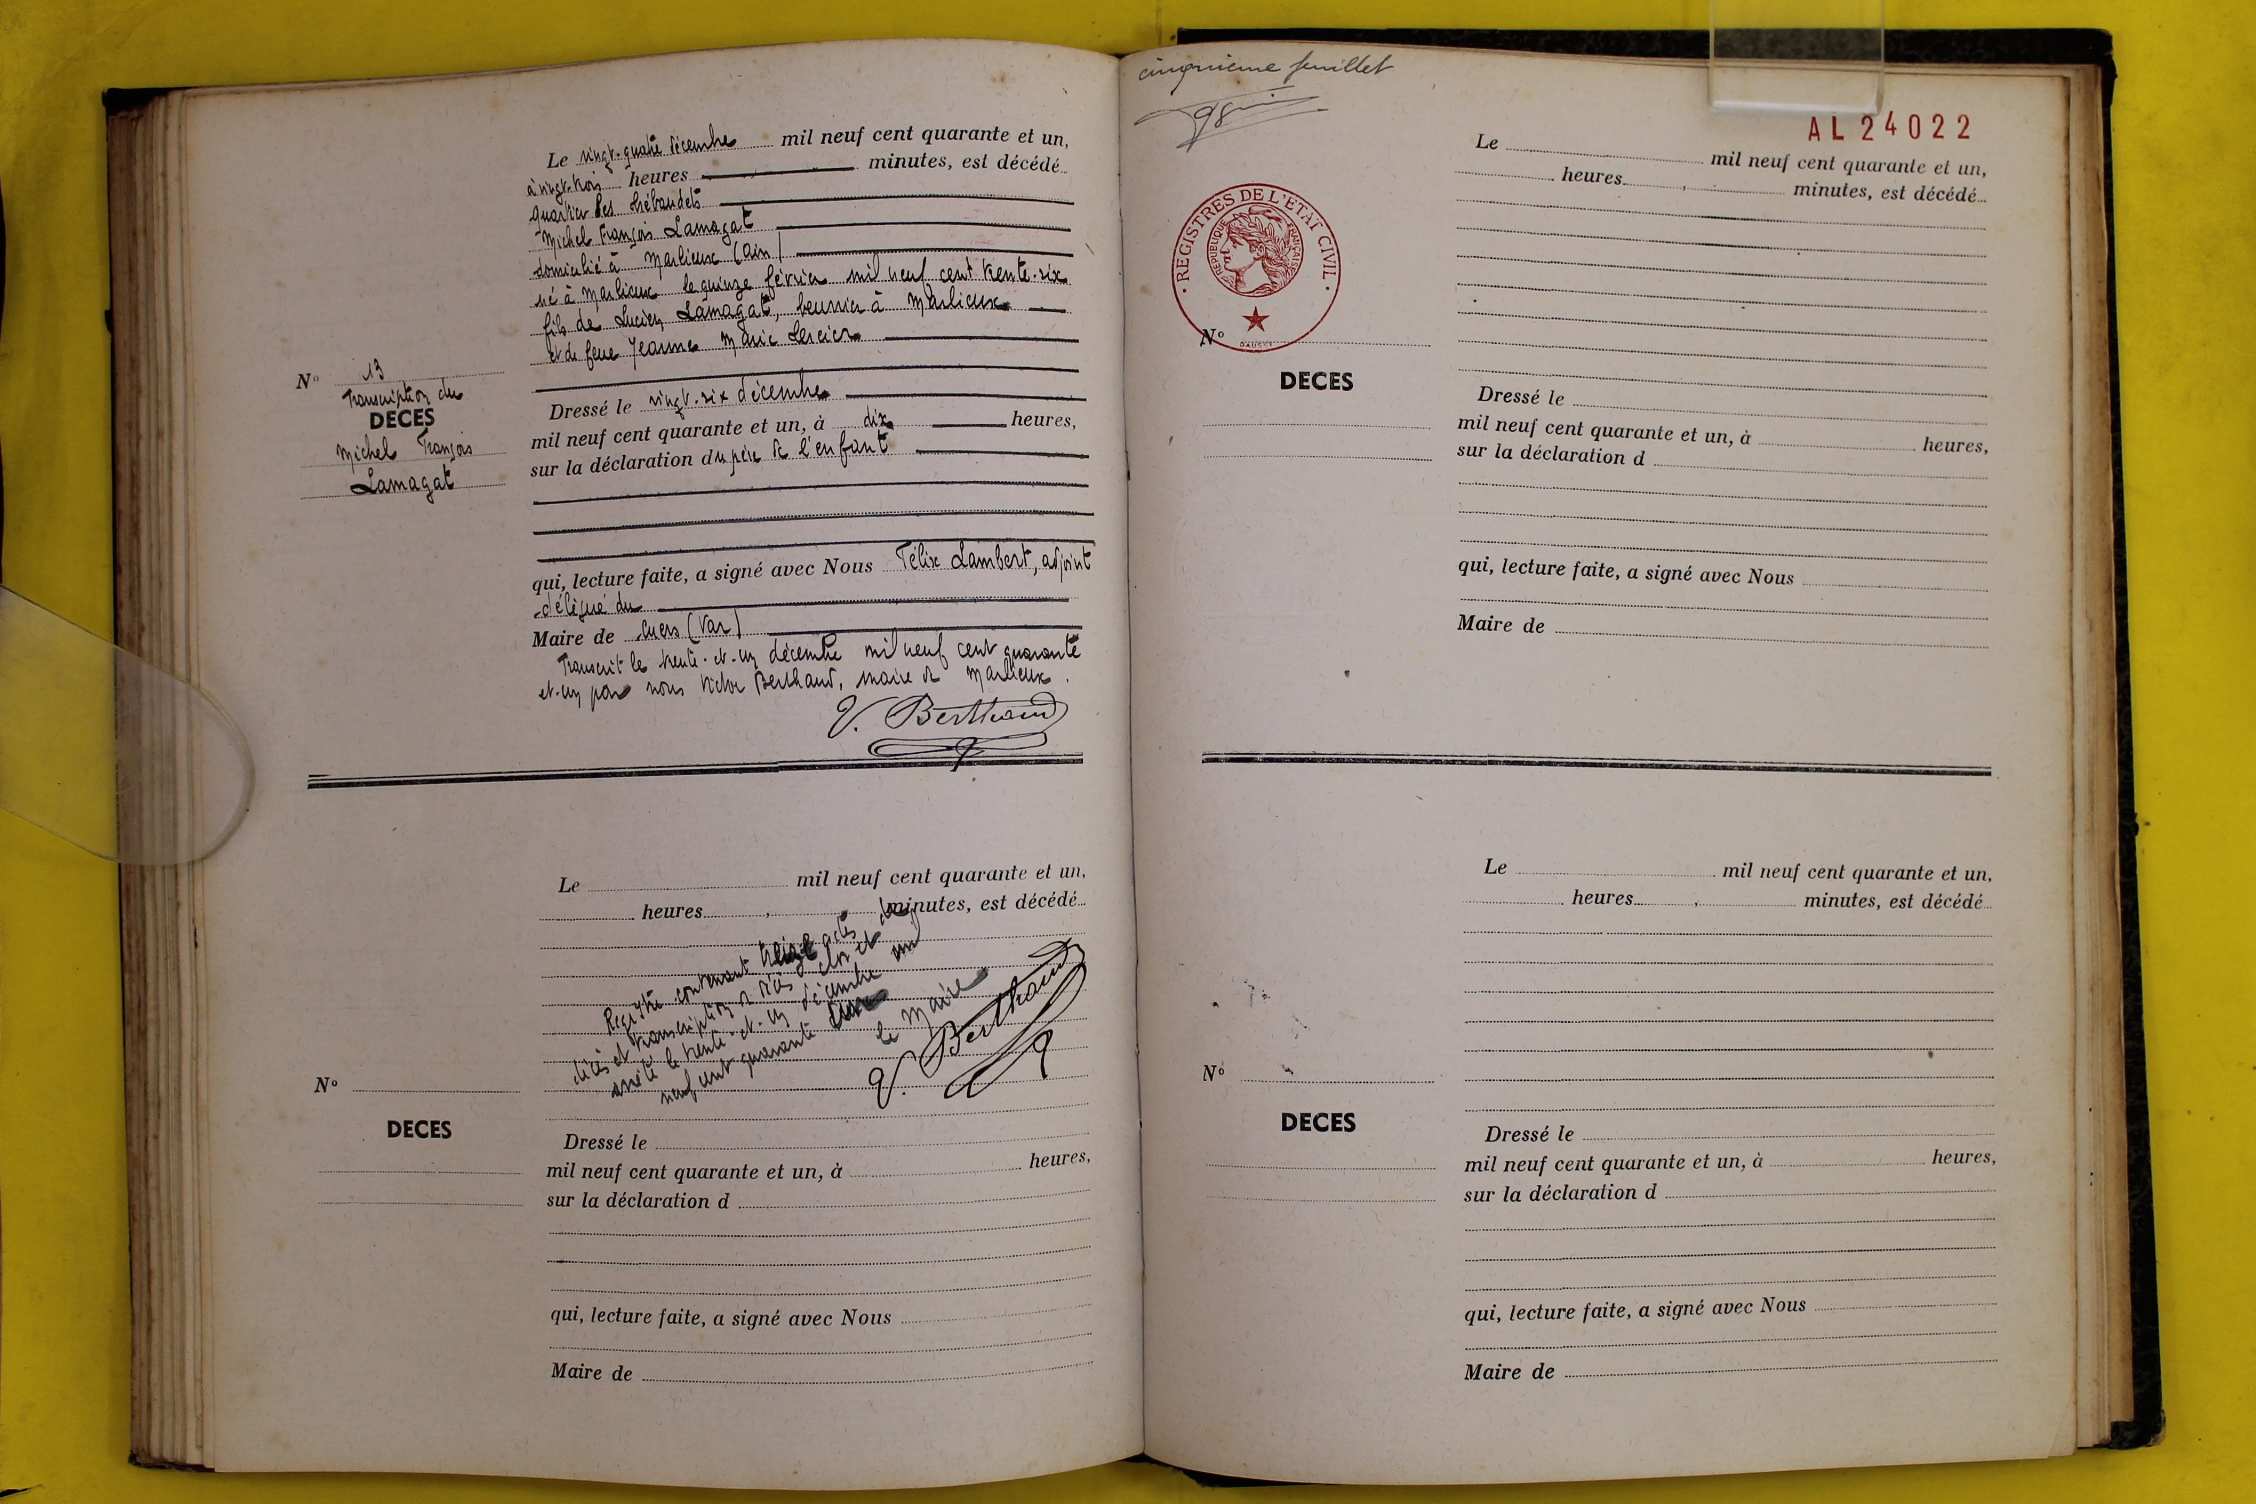 Le vingt-quatre décembre mil neuf cent quarante et un,
à vingt-trois heures minutes, est décédé
quartier des Trébaudels
Michel François Lamagat
domicilié à Marlieux (Ain)
né à Marlieux le quinze février mil neuf cent trente-six
fils de Lucien Lamagat, beurrier à Marlieux
et de feue Jeanne Marie
N° 13
Transcription du
DECES
Michel François
Lamagat
Dressé le vingt-six décembre
mil neuf cent quarante et un, à dix heures,
sur la déclaration du père de l'enfant
qui, lecture faite, a signé avec Nous Félix Lambert, adjoint
délégué du
Maire de Cuers (Var)
Transcrit le trente-et-un décembre mil neuf cent quarante
et-un par nous Victor Berthaud, maire de Marlieux.
V. Berthaud
Le mil neuf cent quarante et un,
heures, minutes, est décédé
Registre contenant treize actes de
décès et transcription de décès clos et
arrêté le trente-et-un décembre mil
neuf cent quarante
le Maire
V. Berthaud
N°
DECES
Dressé le
mil neuf cent quarante et un, à heures,
sur la déclaration d
qui, lecture faite, a signé avec Nous
Maire de
cinquième feuillet
AL24022
REGISTRES DE L'ETAT CIVIL
REPUBLIQUE FRANÇAISE
Le mil neuf cent quarante et un,
heures, minutes, est décédé
N°
DECES
Dressé le
mil neuf cent quarante et un, à heures,
sur la déclaration d
qui, lecture faite, a signé avec Nous
Maire de
Le mil neuf cent quarante et un,
heures, minutes, est décédé
N°
DECES
Dressé le
mil neuf cent quarante et un, à heures,
sur la déclaration d
qui, lecture faite, a signé avec Nous
Maire de